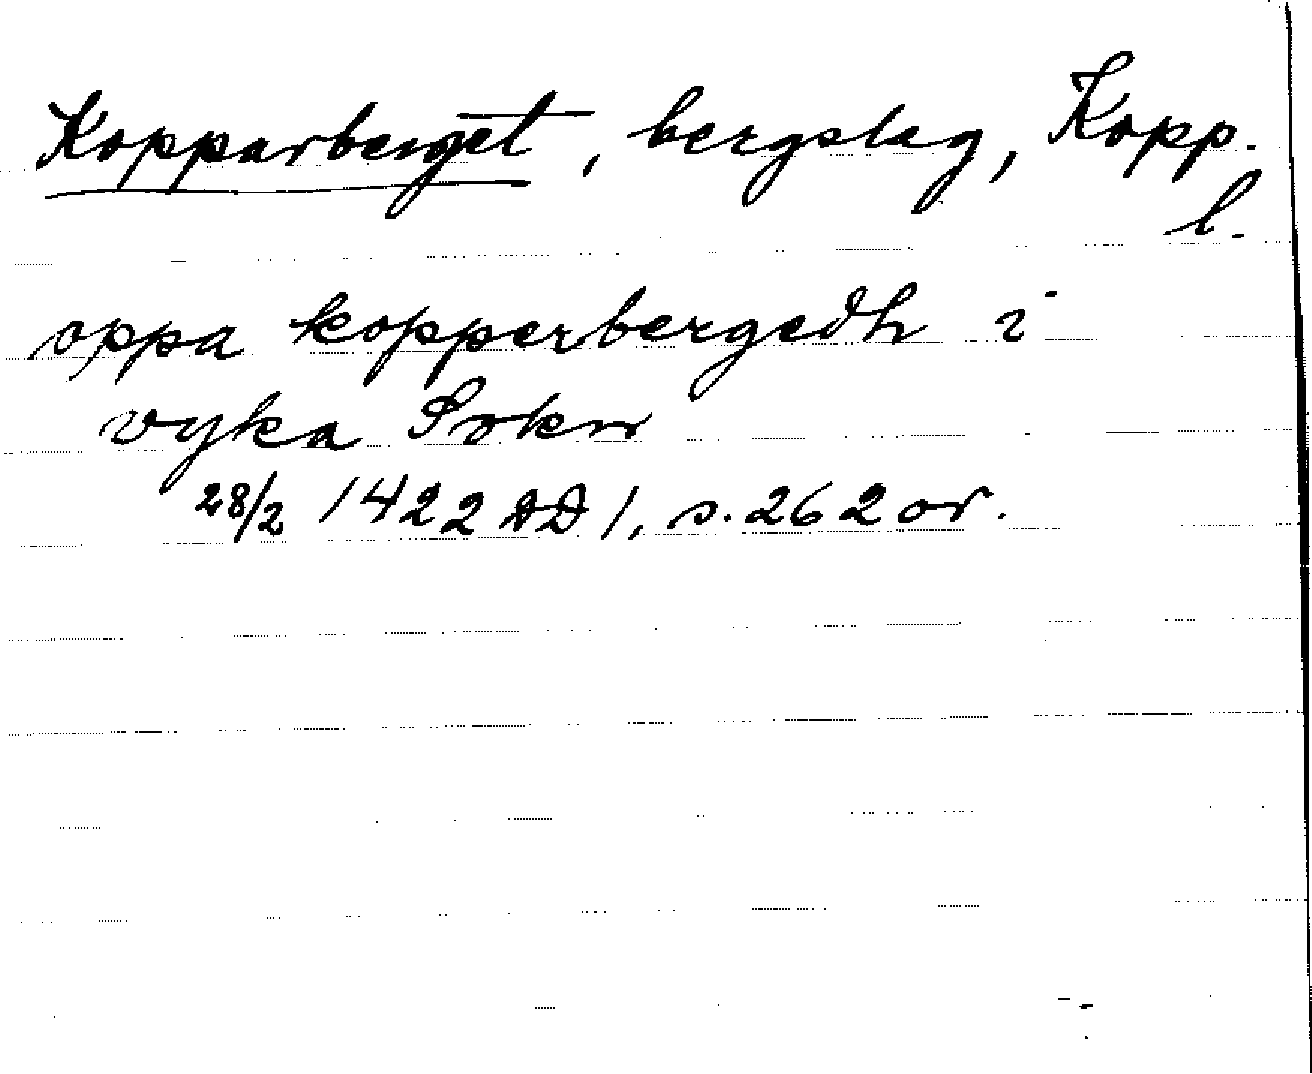 Kopparberget, bergslag, Kopp.
l.
oppa kopperbergedh i
vyka Sokn
28/2 1422 DD 1, s. 262 or.